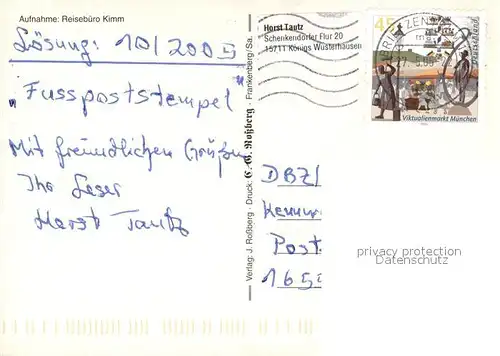 Aufnahme: Reisebüro Kimm
Lösung: 10/2005
"Fusspoststempel"
Mit freundlichen Grüßen
Ihr Leser
Horst Tautz
Verlag: J. Roßberg · Druck: C. G. Roßberg · Frankenberg/Sa.
Horst Tautz
Schenkendorfer Flur 20
15711 Königs Wusterhausen
45
BRIEFZENTRUM
Viktualienmarkt München
DBZ/
Post
165
privacy protection
Datenschutz